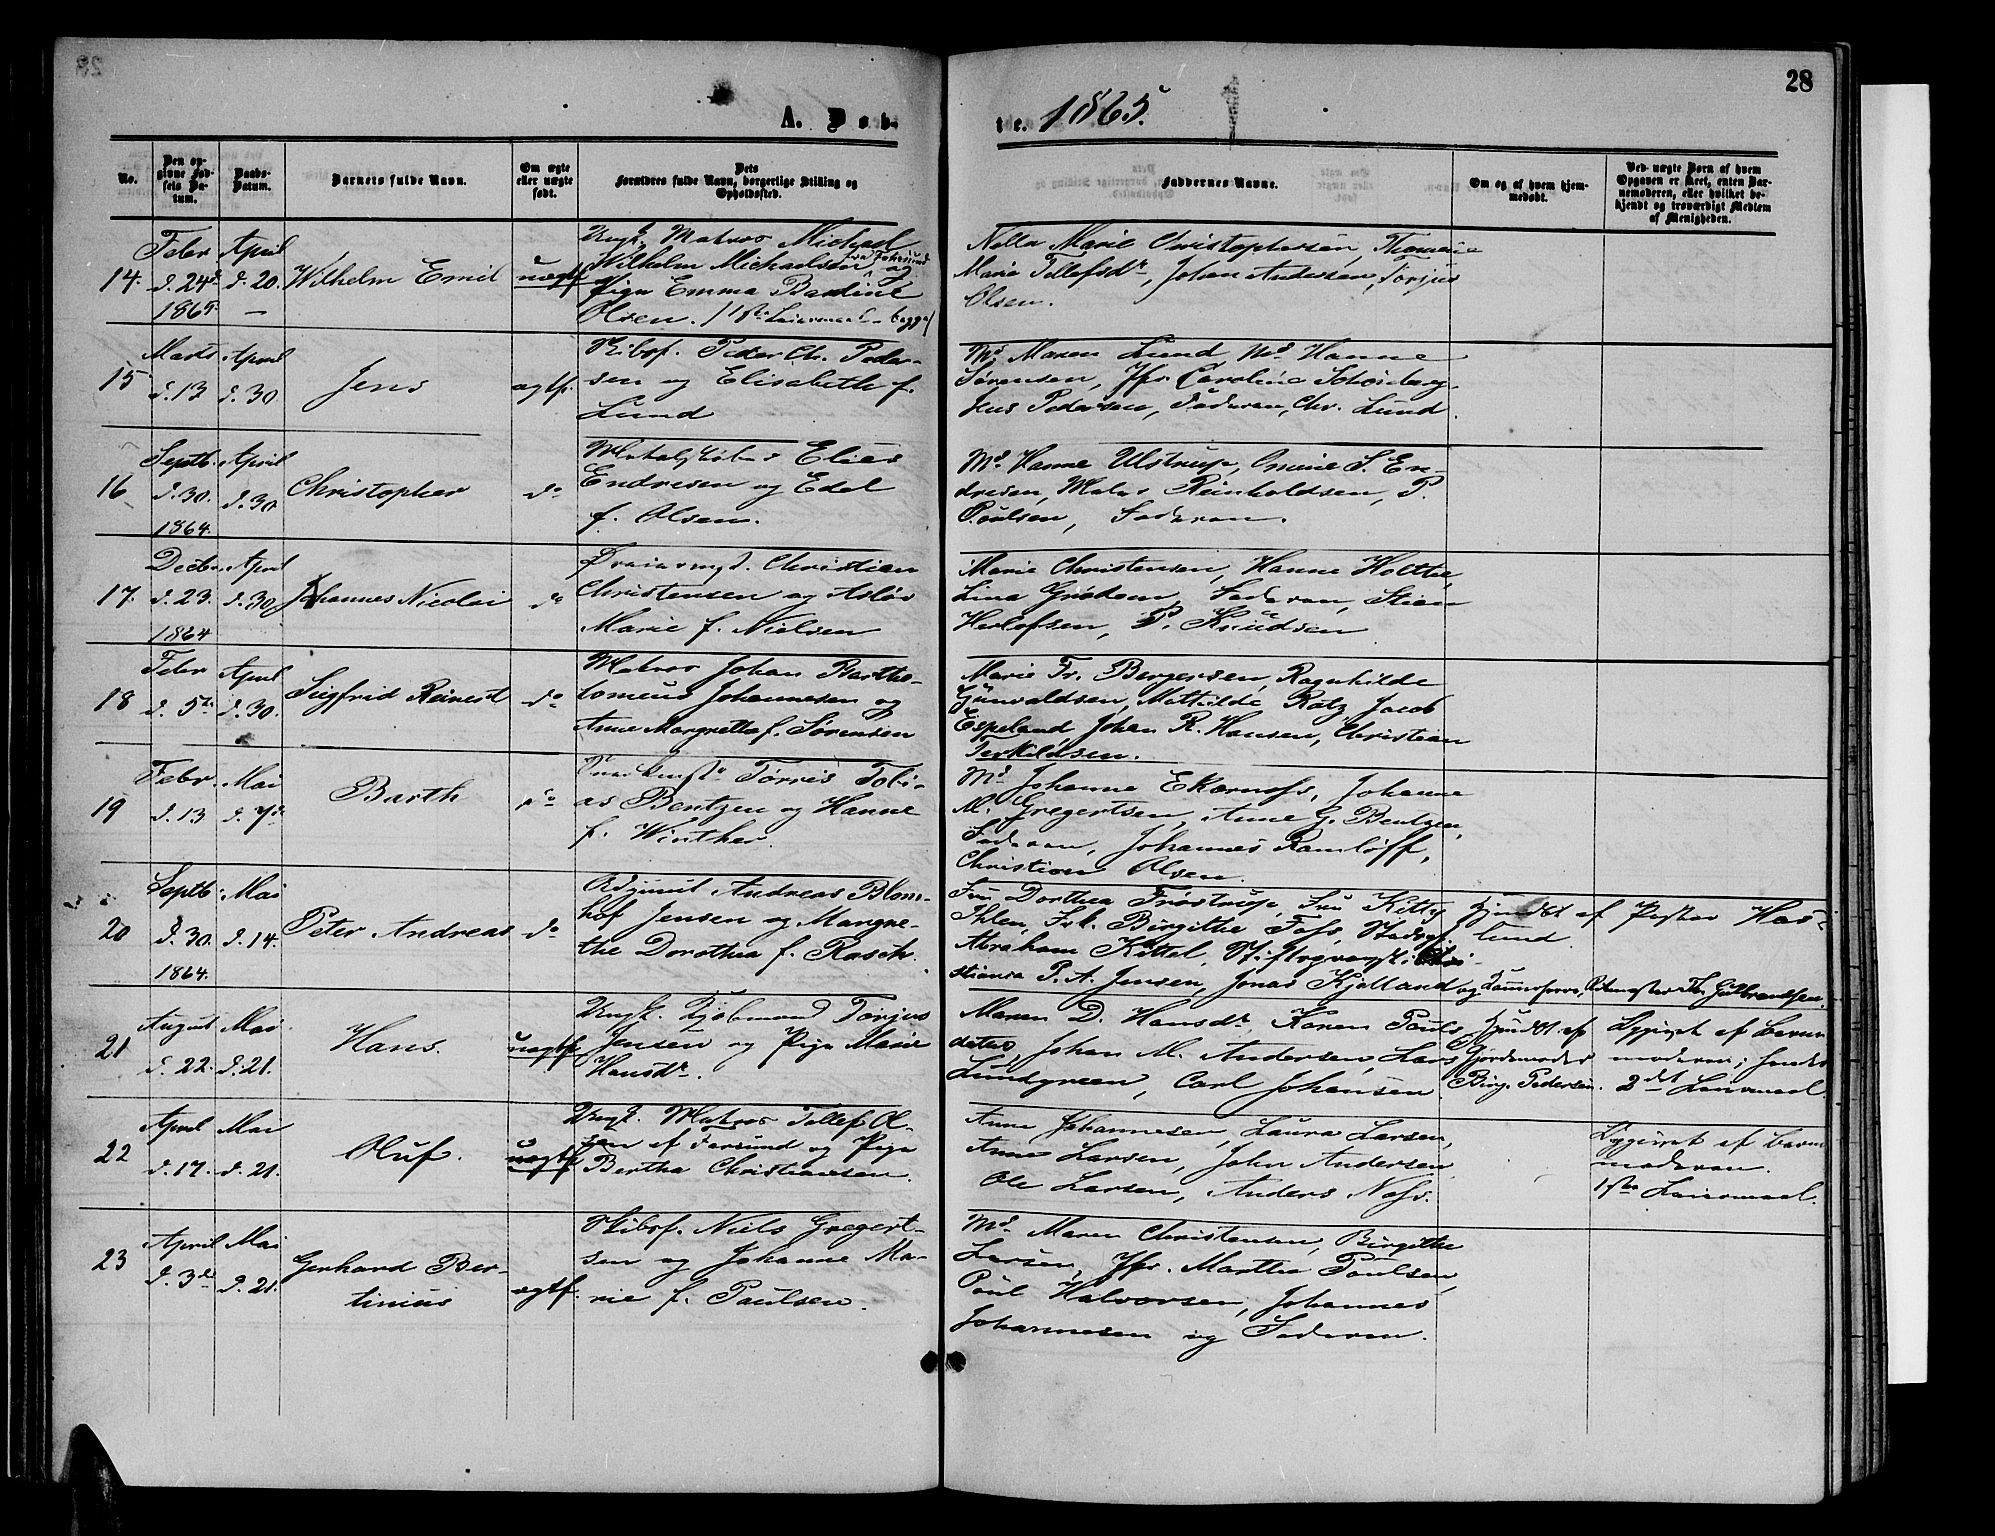 28
A. Døb-
te. 1865.
No.
Den op-
givne Fød-
sels Da-
tum.
Daabs-
Datum.
Barnets fulde Navn.
Om ægte
eller uægte
født.
Dets
Forældres fulde Navn, borgerlige Stilling og
Opholdssted.
Faddernes Navne.
Om og af hvem hjem-
medøbt.
Ved uægte Børn af hvem
Opgaven er skeet, enten Bar-
nemoderen, eller hvilket be-
kjendt og troværdigt Medlem
af Menigheden.
14.
Febr
d. 24de
1865
April
d. 20.
Wilhelm Emil
uægtf
Ungk. Matros Michael
Wilhelm Michaelsen fra og
Pige Emma Bartine
Olsen. /1ste Leiermaal begge/
Nella Marie Christophersen,
Marie Tellefsdr, Johan Andersen, Torjus
Olsen.
15
Marts
d. 13
April
d. 30
Jens
ægtf.
Skibsf. Peder Chr. Peder-
sen og Elisabeth f.
Lund
Md. Maren Lund, Md. Hanne
Sørensen, Jfr. Caroline Schønberg,
Jens Pedersen, Faderen, Chr. Lund.
16
Septb.
d. 30.
1864.
April
d. 30
Christopher
do
Elias
Endresen og Edel
f. Olsen.
Md. Hanne Ulstrup, S. En-
dresen, Reinholdsen, P.
Poulsen, Faderen.
17.
Decbr.
d. 23.
1864
April
d. 30
Johannes Nicolai
do
Dreiersvd. Christian
Christensen og Asløv
Marie f. Nielsen
Marie Christensen, Hanne Holthe,
Lina Grødem, Faderen, Stian
Herlofsen, P. Knudsen
18
Febr
d. 5te
April
d. 30.
Sigfrid Reinert
do
Matros Johan Bartho-
lomeus Johannesen og
Anne Margrethe f. Sørensen
Marie Fr. Bergersen, Ragnhilde
Gunvaldsen, Mathilde Ratz, Jacob
Espeland, Johan R. Hansen, Christian
Terkildsen.
19
Febr.
d. 13
Mai
d. 7de
Barth
do
Tørres Tobi-
as Bentzen og Hanne
f. Winther.
Md. Johanne Ekernæss, Johanne
M. Gregertsen, Anne G. Bentzen,
Faderen, Johannes Ramløff,
Christian Olsen.
20
Septb
d. 30.
1864.
Mai
d. 14.
Peter Andreas
do
Adjunct Andreas Blom-
hof Jensen og Margre-
the Dorothea f. Rasch.
Fru Dorothea Frøstrup, Fru Kitty
Ihlen, Frk. Birgithe Foss,
Abraham Kittel, Stiftsprovst i Chri-
stiania P. A. Jensen, Jonas Kjelland og
Hjemdøbt af Pastor Has-
lund.
21
August
d. 22.
Mai
d. 21.
Hans.
uægtf
Ungk. Kjøbmand Torjus
Jensen og Pige Marie
Hansdr.
Maren D. Hansdr, Karen Pouls-
datter, Johan M. Andersen, Lars
Lundgreen, Carl Johansen
Hjemdøbt af
Jordemoder
Birg. Pedersen.
Opgivet af Barne
moderen;
2det Leiermaal.
22
April
d. 17.
Mai
d. 21.
Oluf.
uægtf
Ungk. Matros Tellef Ol-
sen af Farsund og Pige
Bertha Christiansen.
Anne Johannesen, Laura Larsen,
Anne Larsen, John Andersen,
Ole Larsen, Anders Næss.
Opgivet af Barne
moderen.
1ste Leiermaal.
23
April
d. 3de
Mai
d. 21.
Gerhard Ber-
tinius
ægtf.
Skibsf. Niels Gregert-
sen og Johanne Ma-
rie f. Paulsen.
Md. Maren Christensen, Birgithe
Larsen, Jfr. Marthe Poulsen,
Poul Halvorsen, Johannes
Johannesen og Faderen.